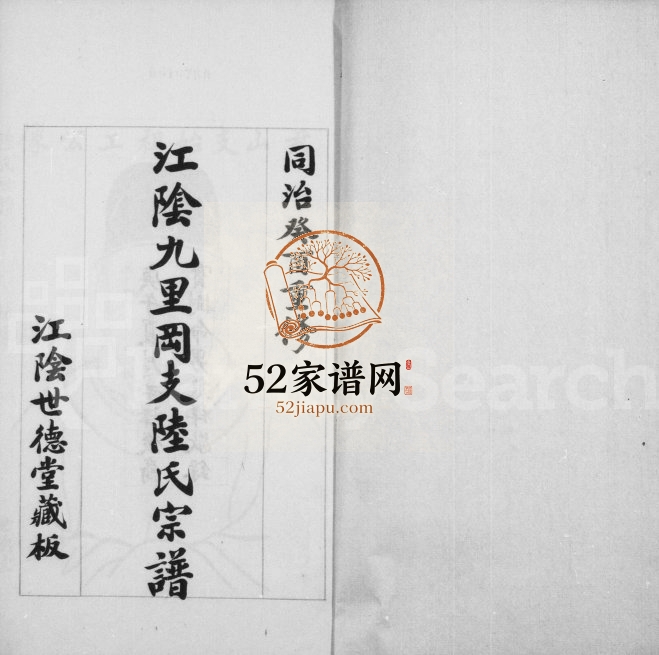 同治癸酉重修
江陰九里岡支陸氏宗譜
江陰世德堂藏板
52家谱网
52jiapu.com